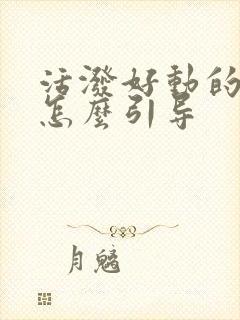 活潑好動的
怎麼引导
月魑